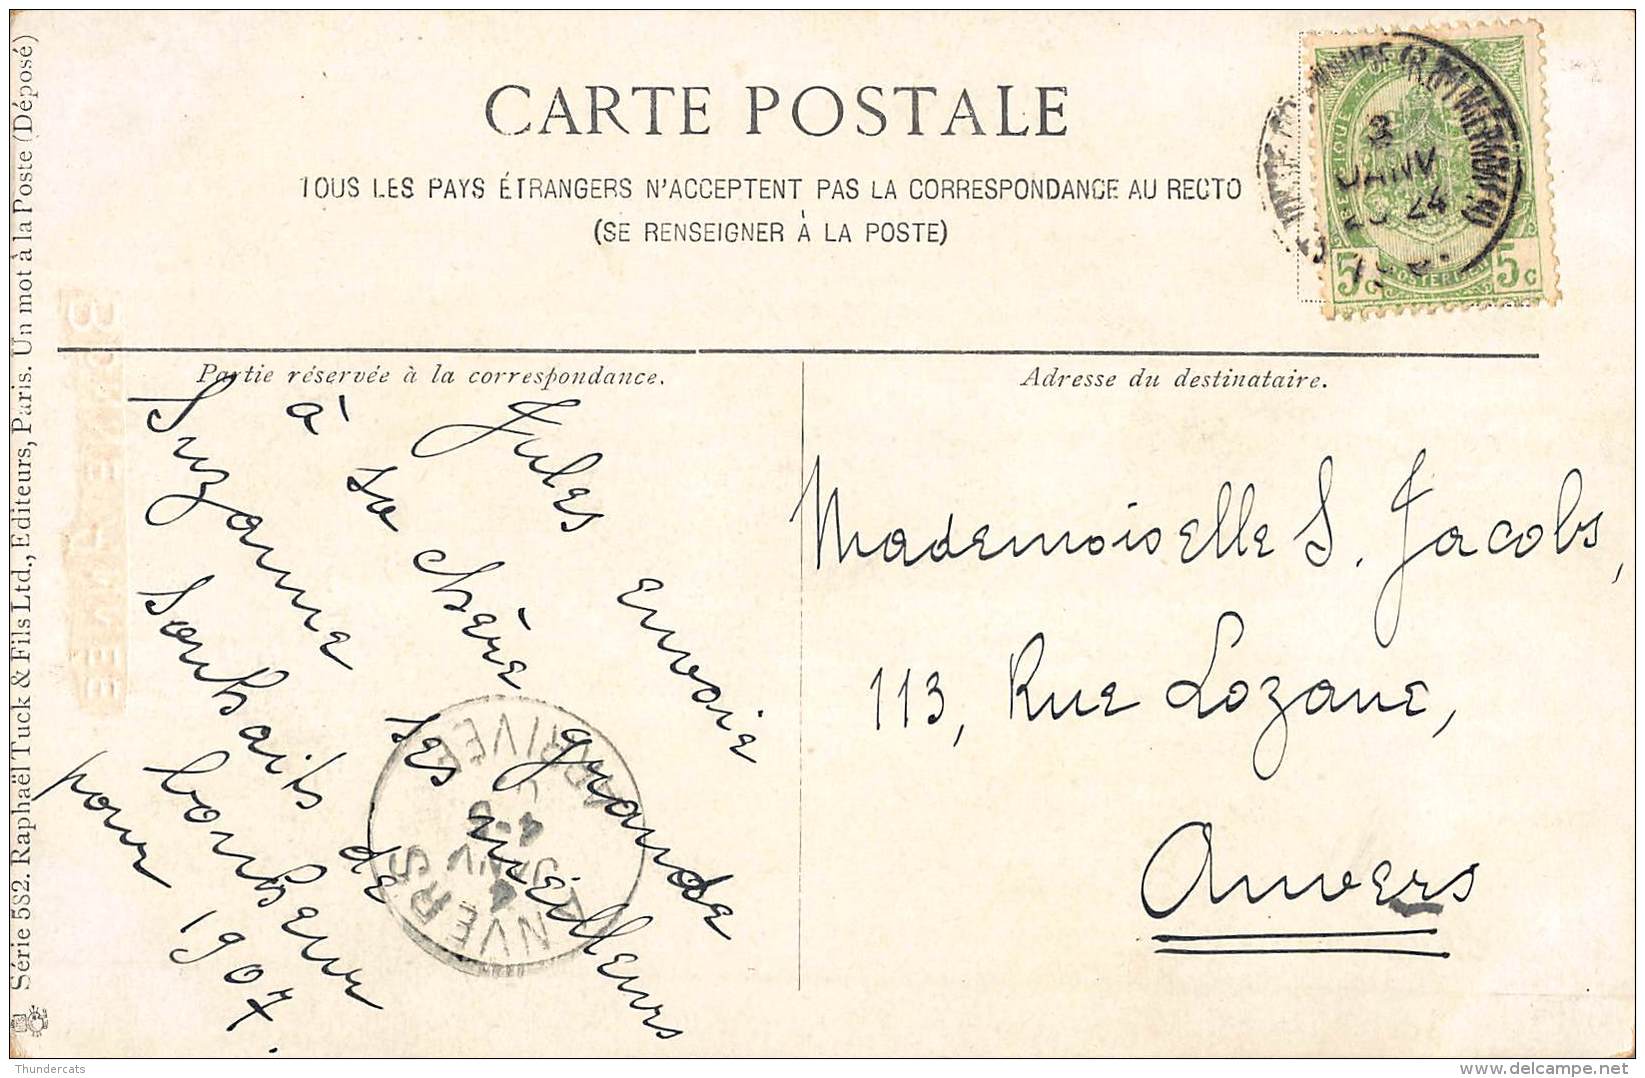 CARTE POSTALE
TOUS LES PAYS ÉTRANGERS N'ACCEPTENT PAS LA CORRESPONDANCE AU RECTO
(SE RENSEIGNER À LA POSTE)
3
JANV
5c 5c
Partie réservée à la correspondance.
Adresse du destinataire.
Jules envoie
à sa chère grande
Suzanne ses meilleurs
souhaits de
bonheur
pour 1907.
Mademoiselle S. Jacobs,
113, Rue Lozane,
Anvers
ANVERS
4
JANV
ARRIVEE
Série 582. Raphaël Tuck & Fils Ltd., Editeurs, Paris. Un mot à la Poste (Déposé)
BONNE ANNÉE
Thundercats
delcampe.net